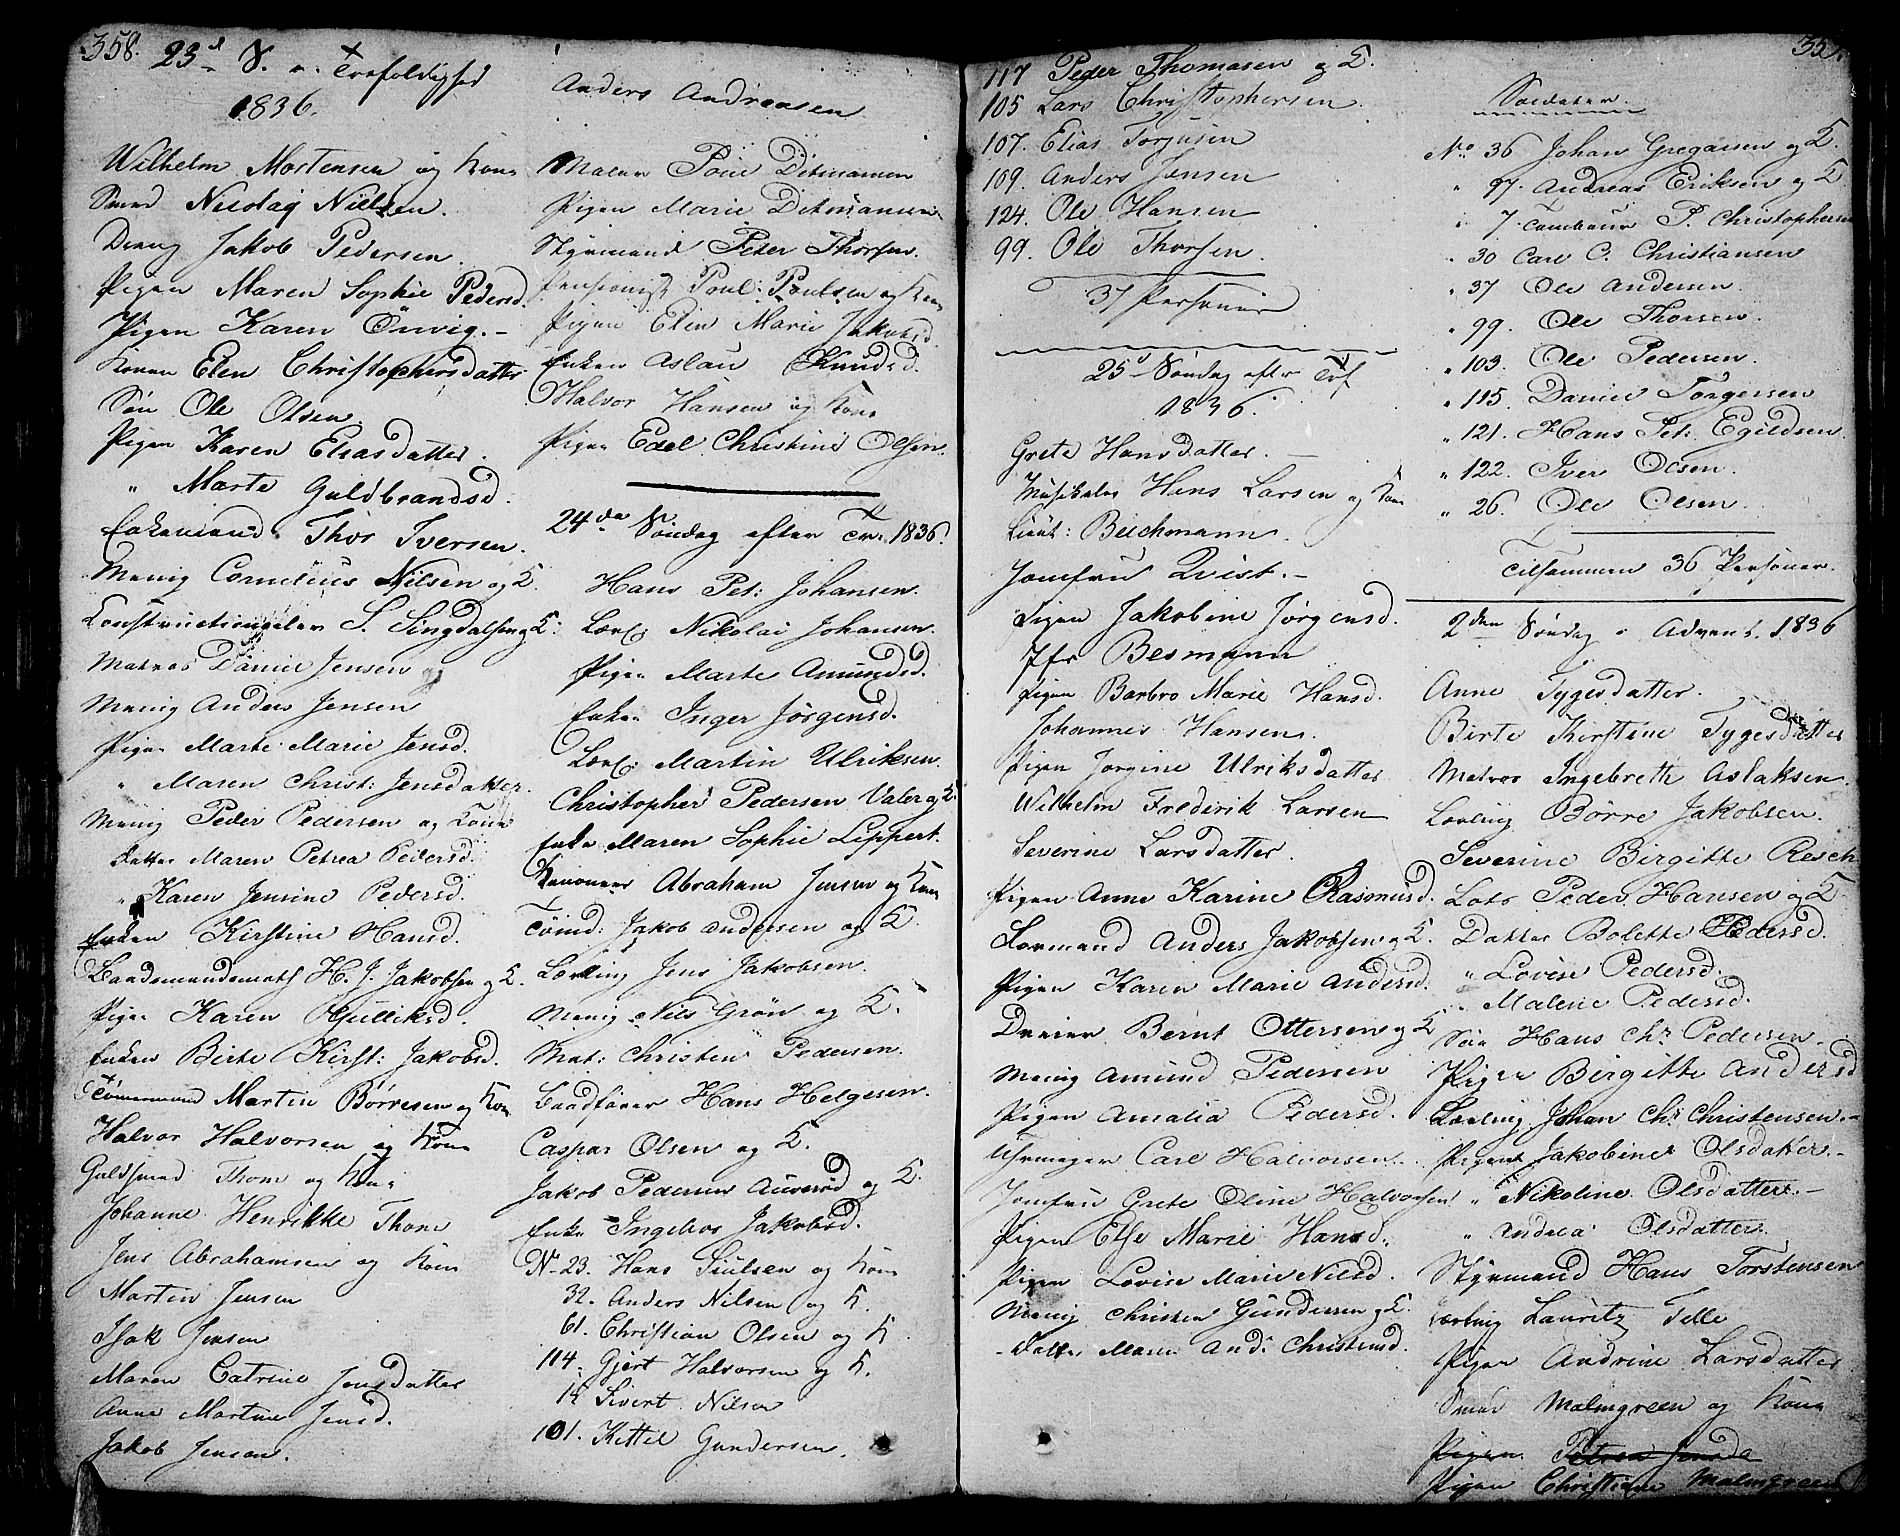 358.
23d S. e. Trefoldighed
1836.
Wilhelm Mortensen og Kone
Smed Nicolay Nielsen.
Dreng Jakob Pedersen.
Pigen Maren Sophie Pedersd.
Pigen Karen Önvig. -
Konen Elen Christophersdatter
Sön Ole Olsen
Pigen Karen Eliasdatter.
" Marte Guldbrandsd.
Enkemand Thor Iversen.
Menig Cornelius Nilsen og K.
Constructionselev S. Lingdalsen og K.
Matros Daniel Jensen
Menig Anders Jensen
Pigen Marte Marie Jensd.
" Maren Christ: Jensdatter.
Menig Peder Pedersen og Kone
Datter Maren Petrea Pedersd.
" Karen Jensine Pedersd.
Enken Kirstine Hansd.
Baadsmandsmath H. J. Jakobsen og K.
Pigen Karen Gulliksd.
Enken Birte Kirst: Jakobsd.
Tömmermand Martin Börresen og Kone
Halvor Halvorsen og Kone
Guldsmed Thom og Kone
Johanne Henrikke Thom
Jens Abrahamsen og Kone
Martin Jensen
Isak Jensen
Maren Catrine Jensdatter
Anne Martine Jensd.
Jakob Jensen.
Anders Andreasen
Maler Poul Ditmansen
Pigen Marie Ditmansen
Styrmand Peter Thorsen.
Pensionist Poul: Poulsen og Kone
Pigen Elen Marie Jakobsd
Enken Aslau Knudsd.
Halvor Hansen og Kone
Pigen Edel Christine Olsen.
24de Söndag efter Tr. 1836.
Hans Pet: Johansen.
Lærl: Nikolai Johansen.
Pigen Marte Amundsd.
Enken Inger Jörgensd.
Lærl: Martin Ulriksen.
Christopher Pedersen Valer og K.
Enke Maren Sophie Lippert.
Kanoneer Abraham Jensen og Kone
Tömd: Jakob Andersen og K.
Lærling Jens Jakobsen.
Menig Nils Grön og K.
Mat: Christen Pedersen.
Baadförer Hans Helgesen.
Caspar Olsen og K.
Jakob Pedersen Auveröd og K.
Enke Ingebor Jakobsd.
No 23. Hans Siulsen og Kone
32. Anders Nilsen og K.
61. Christian Olsen og K
114. Gjert Halvorsen og K.
14 Sivert Nilsen
101. Kittel Gundersen.
117 Peder Thomasen og K.
105 Lars Christophersen.
107. Elias Torjusen
109. Anders Jensen
124. Ole Hansen
99. Ole Thorsen.
37 Personer
25d Söndag efter Tref
1836.
Grete Hansdatter. -
Musikeler Hans Larsen og Kone
Lieut: Beichmann.
Jomfru Qvist. -
Pigen Jakobine Jörgensd.
Jfr Besmann
Pigen Barbro Marie Hansd.
Johannes Hansen.
Pigen Jorgine Ulriksdatter
Wilhelm Frederik Larsen
Severine Larsdatter.
Pigen Anne Karine Rasmusd.
Formand Anders Jakobsen og K.
Pigen Karen Marie Andersd.
Dreier Bernt Ottersen og K
Menig Amund Pedersen
Pigen Amalia Pedersd.
Uhrmager Carl Halvorsen.
Jomfru Grete Oline Halvorsen
Pigen Else Marie Hansd.
Pigen Lovise Marie Nilsd.
Menig Christen Gundersen og K.
- Datter Maren And: Christensd.
Soldater.
No 36 Johan Gregarsen og K.
" 97. Andreas Eriksen og K
" 7 Tambour P. Christophersen
" 30 Carl C. Christiansen
" 37 Ole Andersen.
" 99. Ole Thorsen.
" 103. Ole Pedersen.
" 115. Daniel Torgersen
" 121. Hans Pet: Egildsen.
" 122. Iver Olsen.
" 26. Ole Olsen.
Tilsammen 36 Personer.
2den Söndag i Advent. 1836
Anne Tygesdatter.
Birte Kirstine Tygesdatter
Matros Ingebreth Aslaksen.
Lærling Börre Jakobsen.
Severine Birgitte Resch
Lots Peder Hansen og K
Datter Bolette Pedersd.
" Lovise Pedersd.
" Malene Pedersd.
Sön Hans Chr Pedersen.
Pigen Birgitte Andersd
Lærling Johan Chr Christensen. -
Pigen Jakobine Olsdatter. -
" Nikoline Olsdatter. -
" Andrea Olsdatter.
Styrmand Hans Torstensen
Lærling Lauritz Telle
Pigen Andrine Larsdatter
Smed Malmgreen og Kone
Pigen Petrea
Pigen Christiane Malmgreen